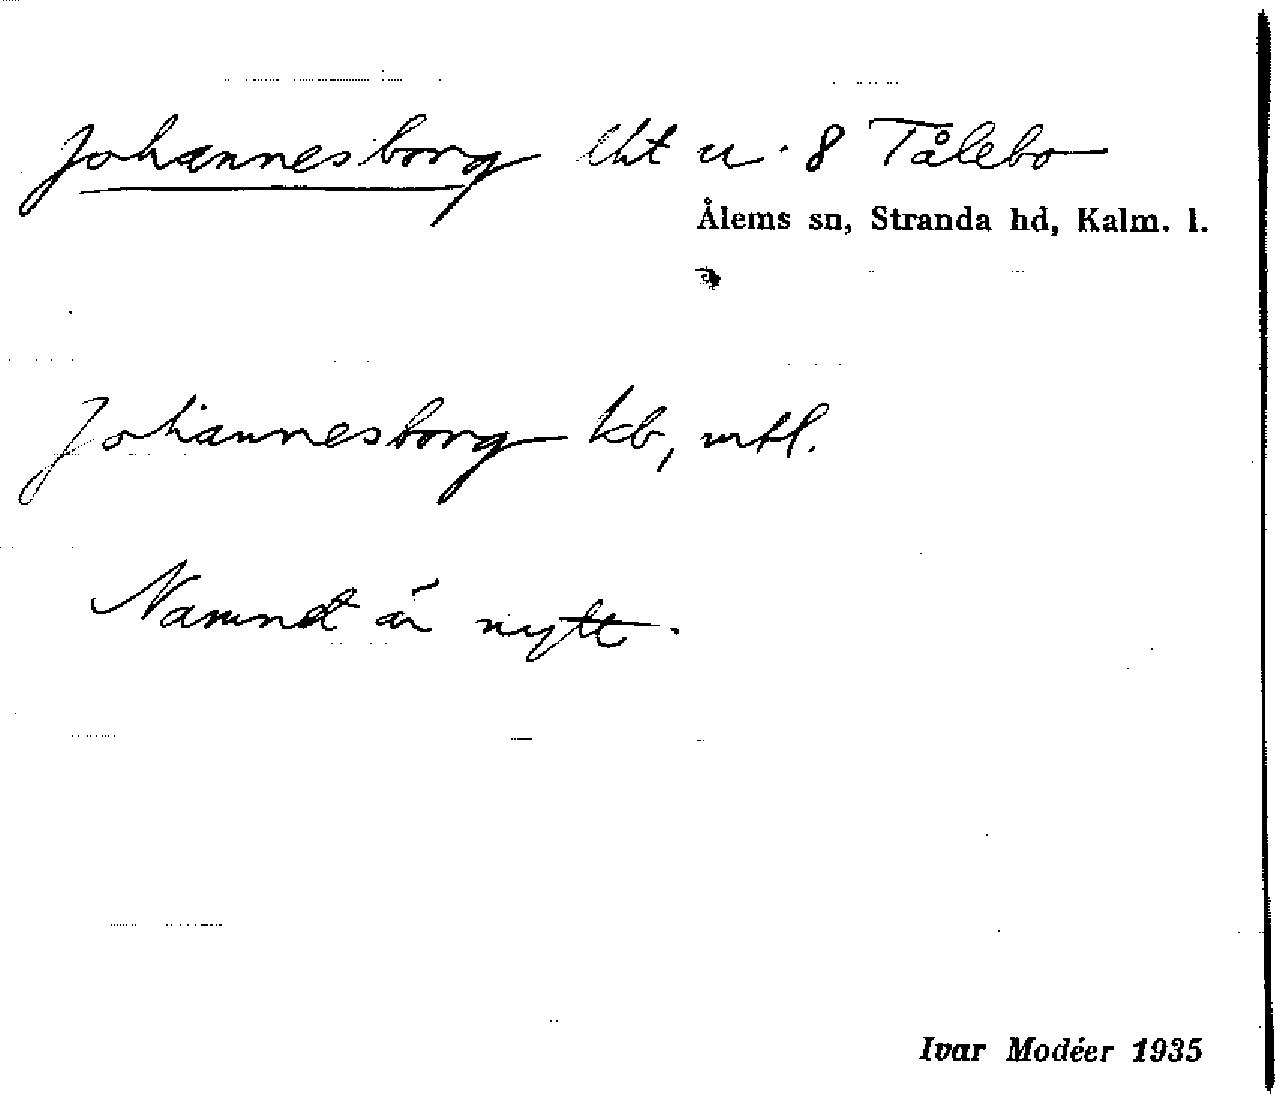 Johannesborg lht u. 8 Tålebo
Ålems sn, Stranda hd, Kalm. l.
Johannesborg kb, mtl.
Namnet är nytt.
Ivar Modéer 1935